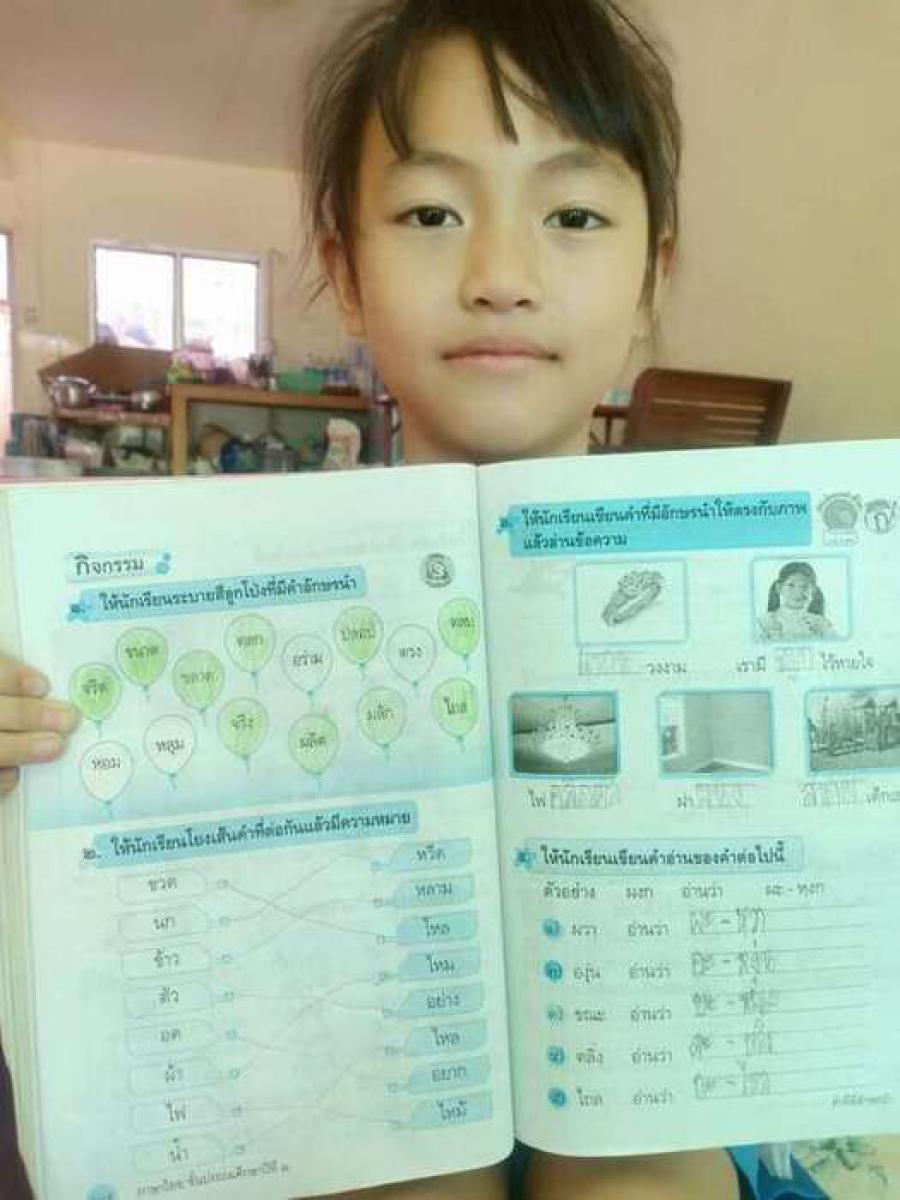 กิจกรรม
๑. ให้นักเรียนระบายสีลูกโป่งที่มีคำอักษรนำ
จริต ขนาด ฉลาด ตลก อร่าม ปลอบ ตรง ตลบ
หอม หลุม จริง ผลิต ไกล
๒. ให้นักเรียนโยงเส้นคำที่ต่อกันแล้วมีความหมาย
ขวด หวีด
นก หลาม
ข้าว ไหล
ตัว ไหม
อด อย่าง
ผ้า ไหล
ไฟ อยาก
น้ำ ไหม้
ภาษาไทย ชั้นประถมศึกษาปีที่ ๒
๓. ให้นักเรียนเขียนคำที่มีอักษรนำให้ตรงกับภาพ
แล้วอ่านข้อความ
วงงาม เรามี ไว้หายใจ
ไฟ ฝา
ให้นักเรียนเขียนคำอ่านของคำต่อไปนี้
ตัวอย่าง ผงก อ่านว่า ผะ - หงก
ผวา อ่านว่า ผะ - หวา
องุ่น อ่านว่า อะ - หงุ่น
ขณะ อ่านว่า ขะ - หณะ
ตลิ่ง อ่านว่า ตะ - หลิ่ง
อ่านว่า